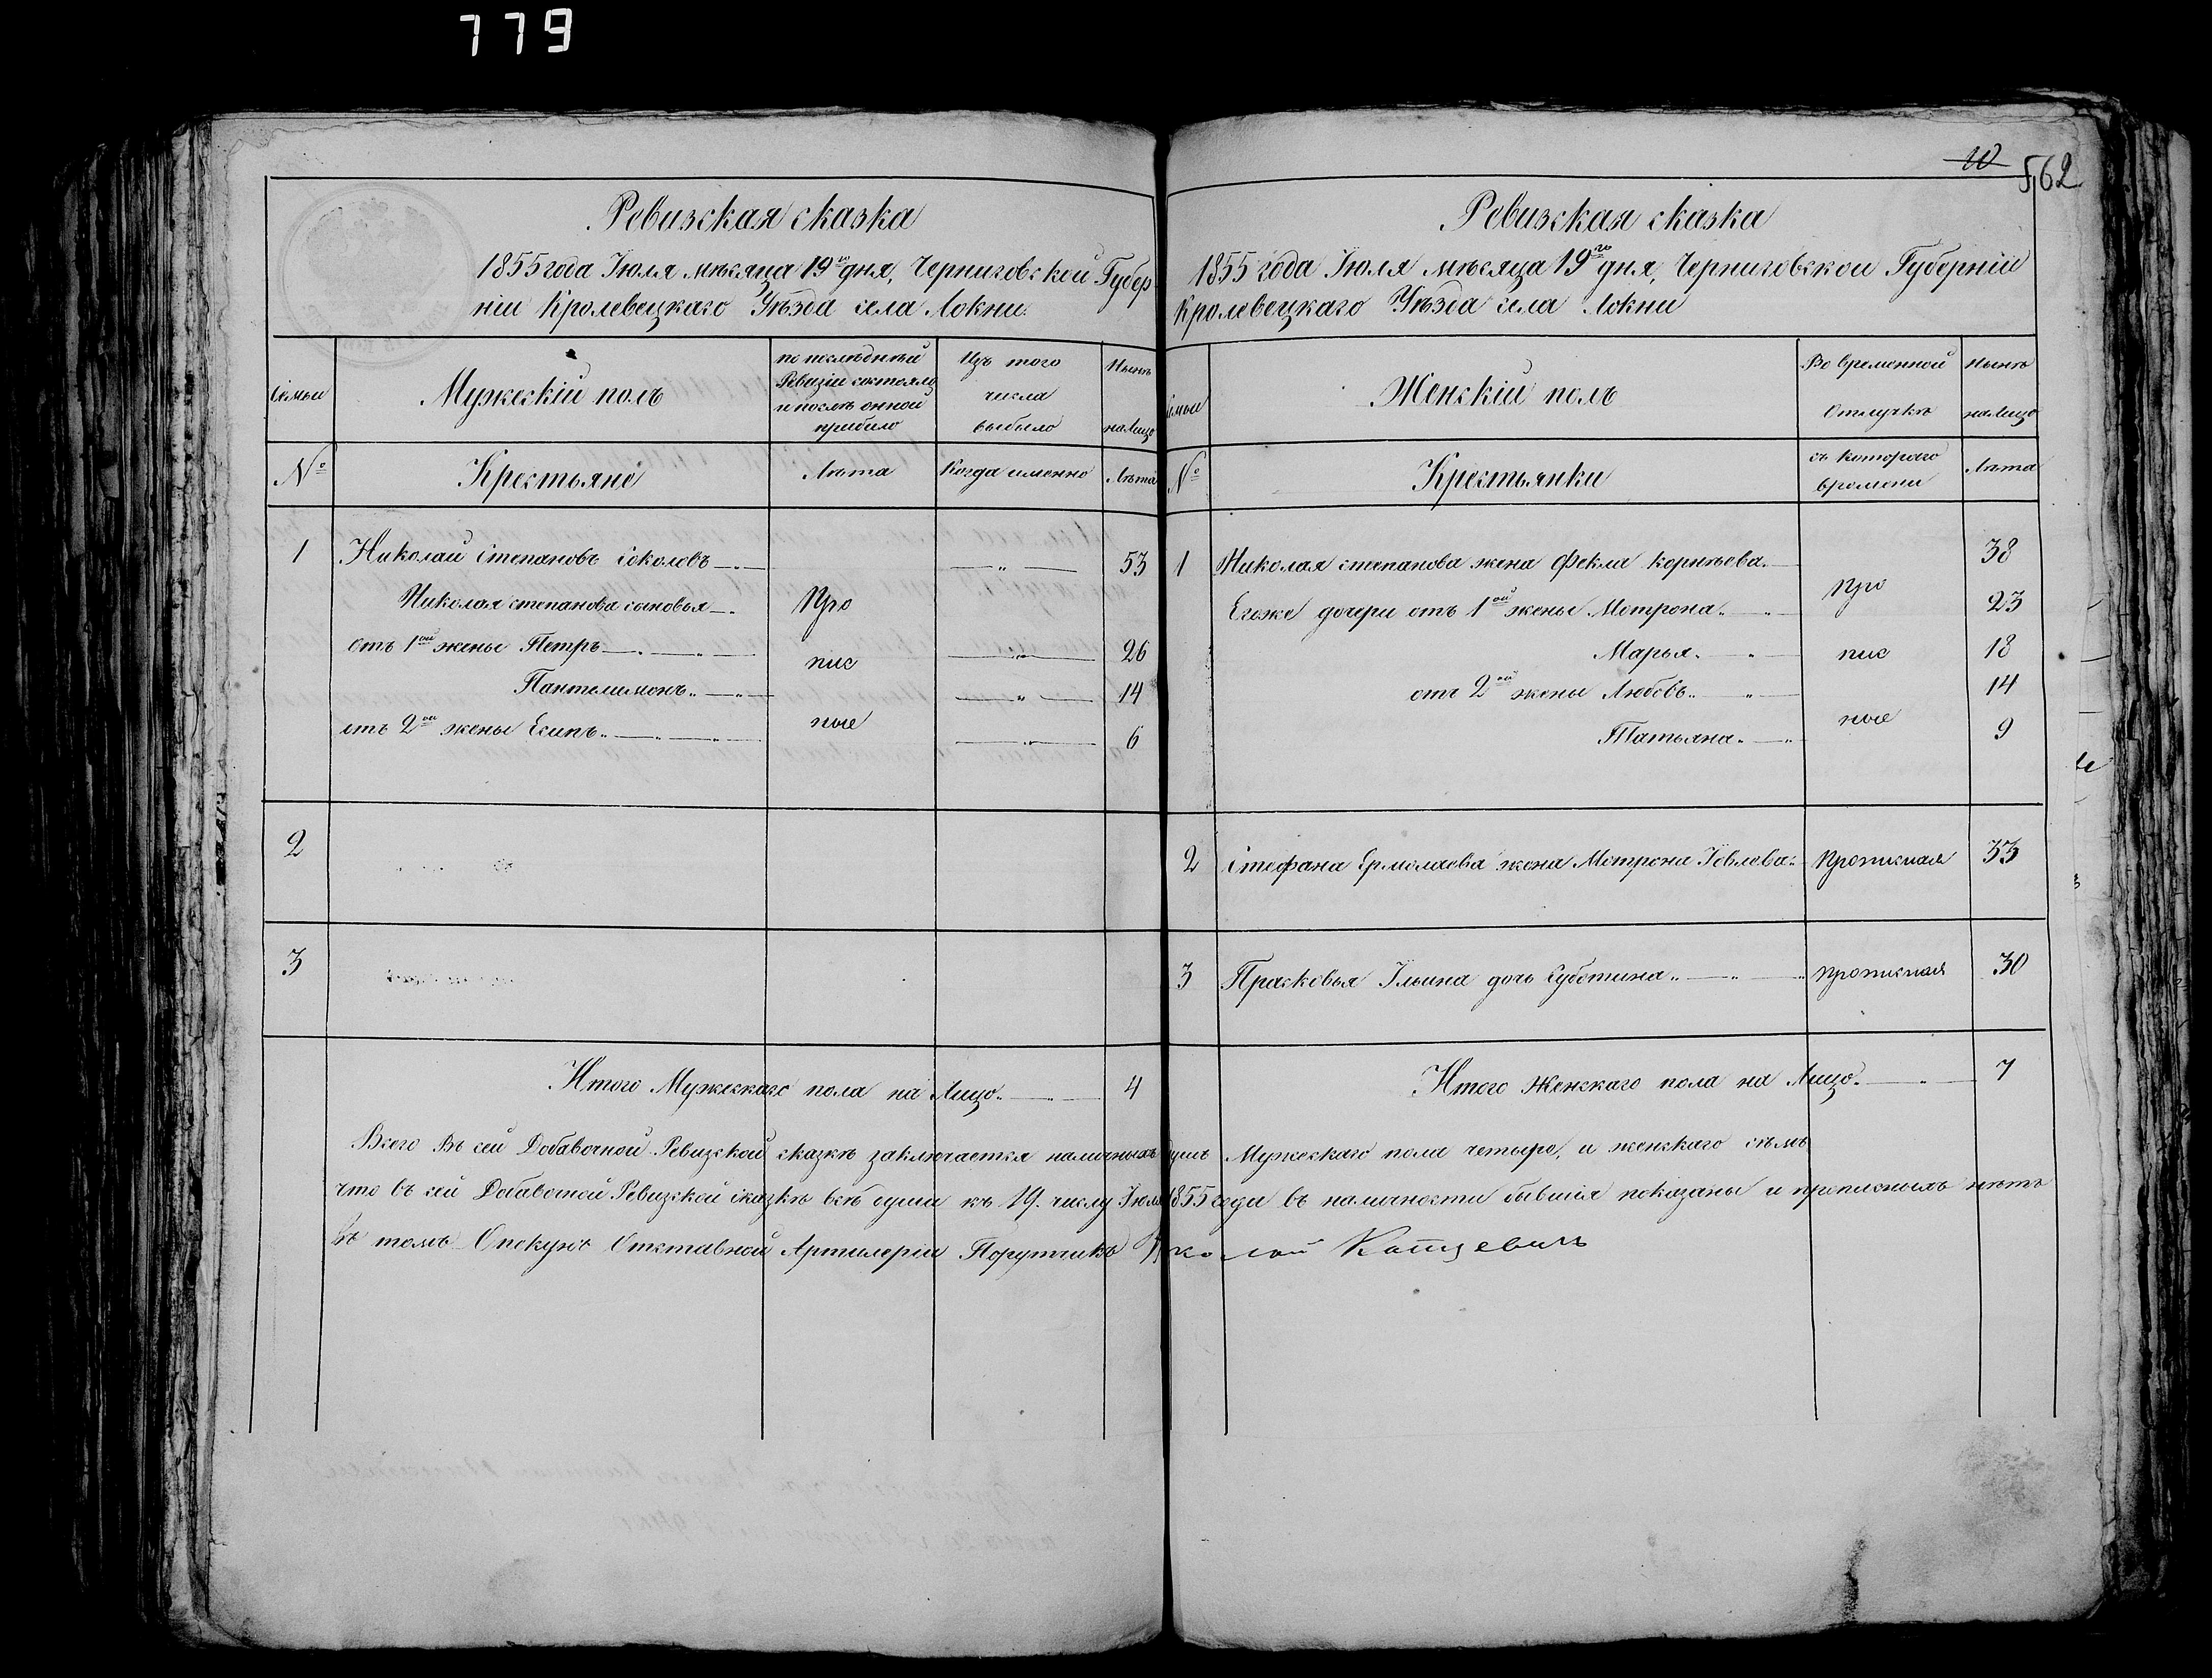 779
10
562
Ревизская сказка
1855 года Іюля мѣсяца 19го дня, Черниговской Губер
ніи Кролевецкаго Уѣзда села Локни.
Семьи
Мужескій полъ
по послѣдней
Ревизіи состояло
и послѣ онной
прибыло
Изъ того
числа
выбыло
Нынѣ
на лицо
№
Крестьяне
Лѣта
Когда именно
Лѣта
1 Николай Степановъ Соколовъ 53
Николая степанова сыновья Про
отъ 1ой жены Петръ 26
пис
Пантелимонъ 14
ные
отъ 2ой жены Есипъ 6
2
3
Итого Мужескаго пола на Лицо 4
Ревизская сказка
1855 года Іюля мѣсяца 19го дня, Черниговской Губерніи
Кролевецкаго Уѣзда села Локни
Семьи
Женскій полъ
Во временной
Отлучкѣ
Нынѣ
на лицо
№
Крестьянки
съ котораго
времени
Лѣта
1 Николая степанова жена Фекла Корнѣева 38
Про
Егоже дочери отъ 1ой жены Мотрона 23
Марья пис 18
отъ 2ой жены Любовь 14
ные
Татьяна 9
2 Стефана Ермолаева жена Мотрона Іевлева Прописная 33
3 Прасковья Ильина дочь Суботина прописная 30
Итого Женскаго пола на Лицо 7
Всего Въ сей Добавочной Ревизской сказкѣ заключается наличныхъ душъ Мужескаго пола четыре, и женскаго сѣмь
что въ сей Добавочной Ревизской сказкѣ всѣ души къ 19. числу Іюля 1855 года въ наличности бывшія показаны и прописныхъ нѣтъ
Въ томъ Опекунъ Отставной Артилеріи Поручикъ Николай